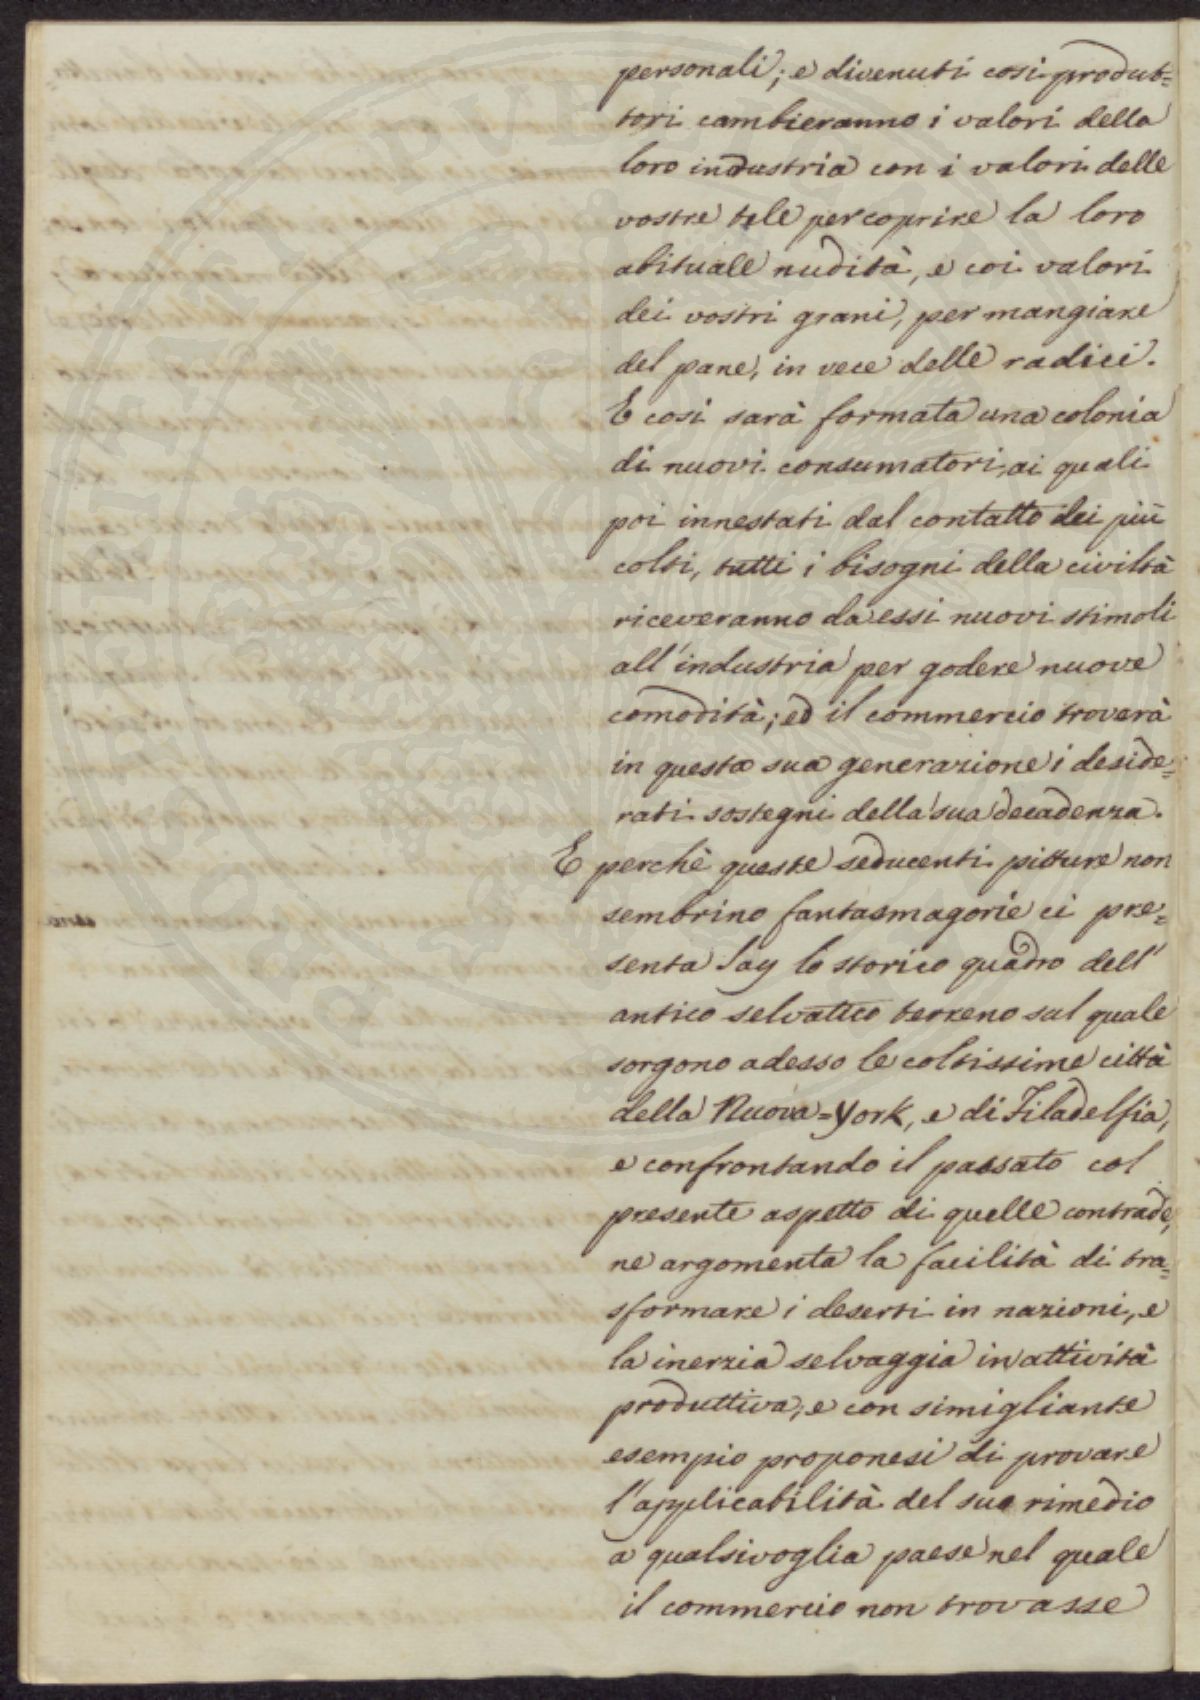 personali; e divenuti cosi produt=
tori cambieranno i valori della
loro industria con i valori delle
vostre tele per coprire la loro
abituale nudità, e coi valori
dei vostri grani, per mangiare
del pane, in vece delle radici.
E cosi sarà formata una colonia
di nuovi consumatori, ai quali
poi innestati dal contatto dei più
colti, tutti i bisogni della civiltà
riceveranno da essi nuovi stimoli
all'industria per godere nuove
comodità; ed il commercio troverà
in questa sua generazione i deside=
rati sostegni della sua decadenza.
E perchè queste seducenti pitture non
sembrino fantasmagorie ci pre=
senta Say lo storico quadro dell'
antico selvatico terreno sul quale
sorgono adesso le coltissime città
della Nuova=York, e di Filadelfia,
e confrontando il passato col
presente aspetto di quelle contrade,
ne argomenta la facilità di tra=
sformare i deserti in nazioni, e
la inerzia selvaggia in attività
produttiva; e con simigliante
esempio proponesi di provare
l'applicabilità del suo rimedio
a qualsivoglia paese nel quale
il commercio non trovasse